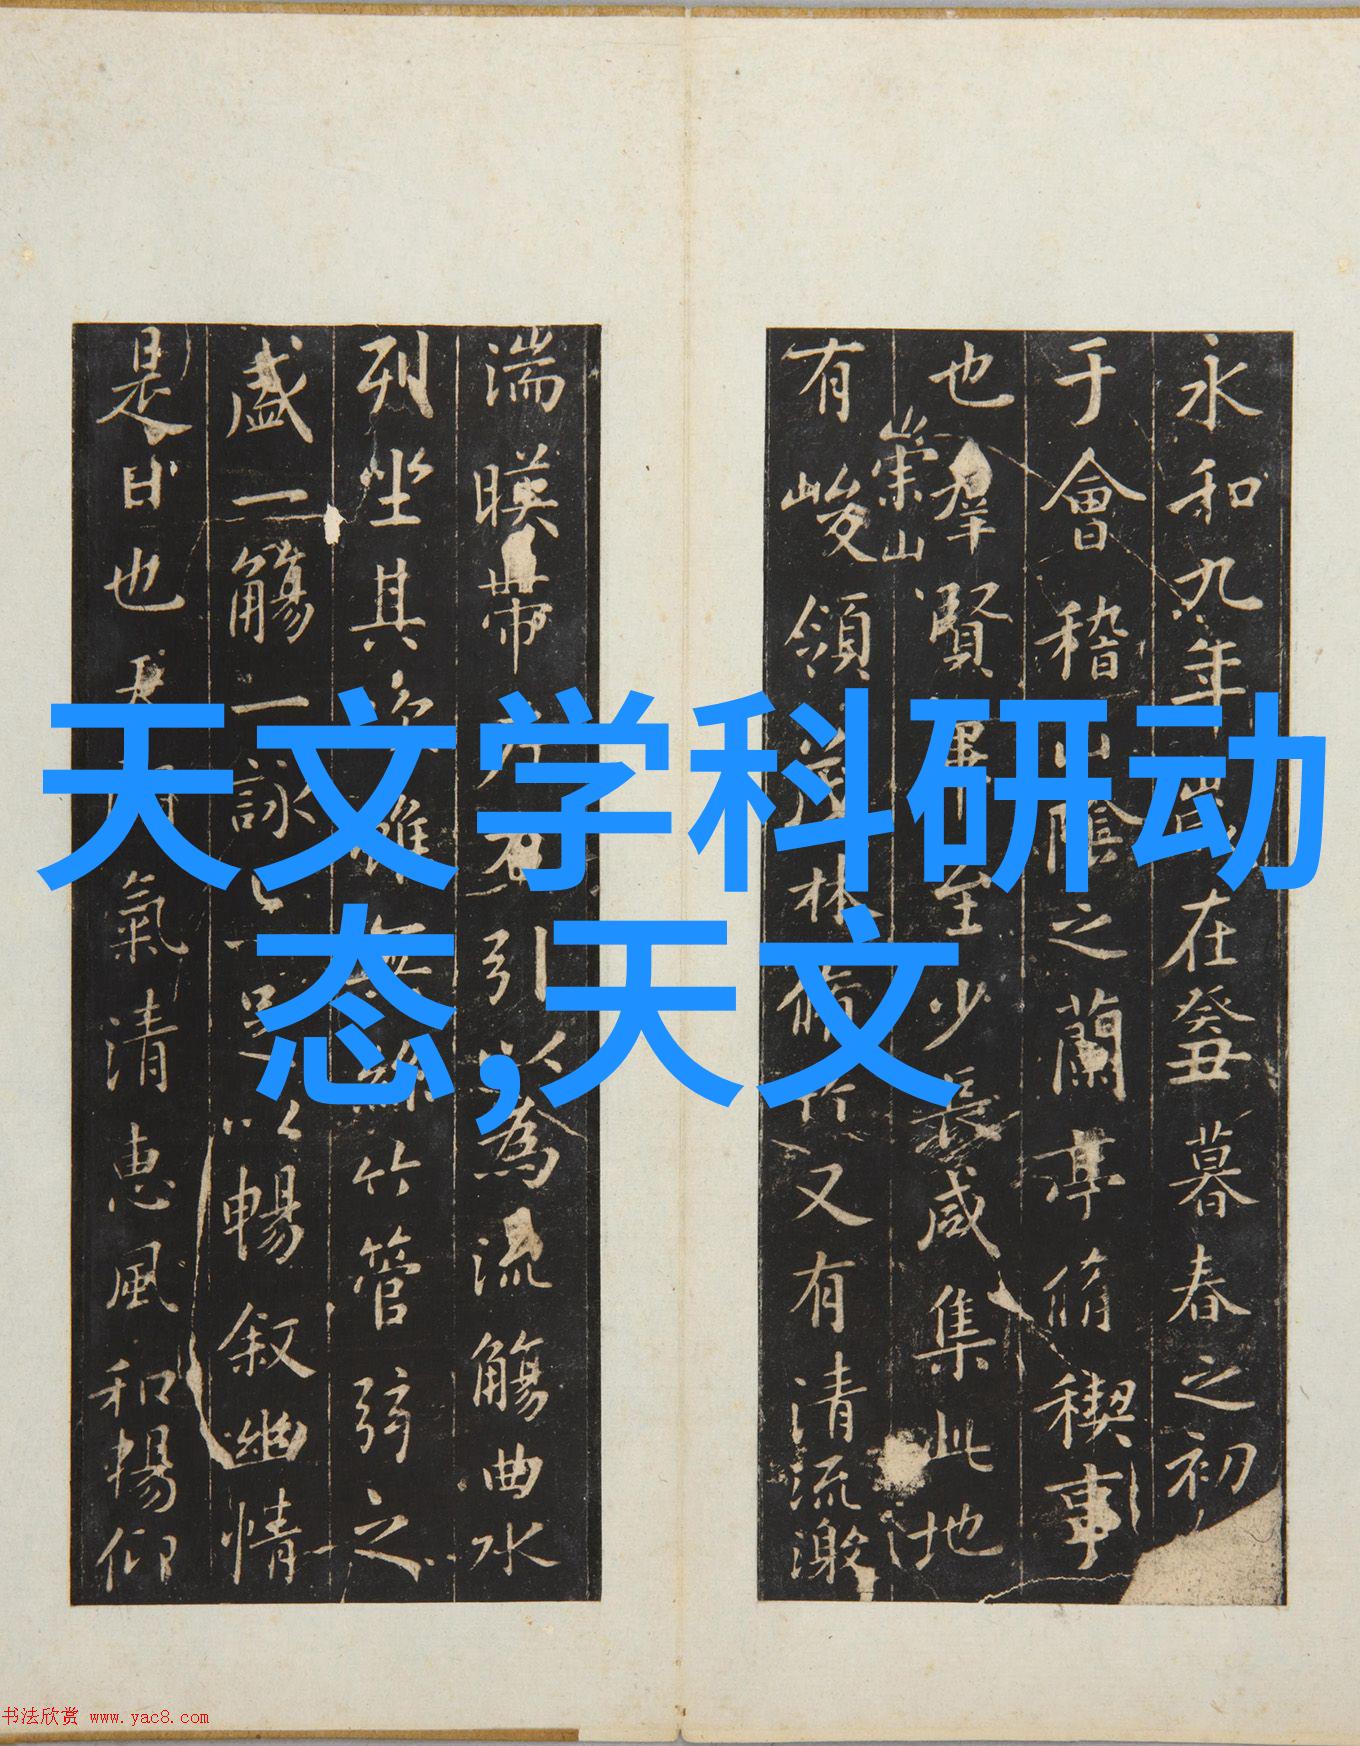 天文学科研动
态,天文
永和九年歲在癸丑暮春之初
于會稽山陰之蘭亭脩稧事
也羣賢畢至少長咸集此地
有崇山峻領茂林脩竹又有清流激
湍暎帶左右引以為流觴曲水
列坐其次雖無絲竹管弦之
盛一觴一詠亦足以暢敘幽情
是日也天朗氣清惠風和暢仰
书法欣赏 www.yac8.com